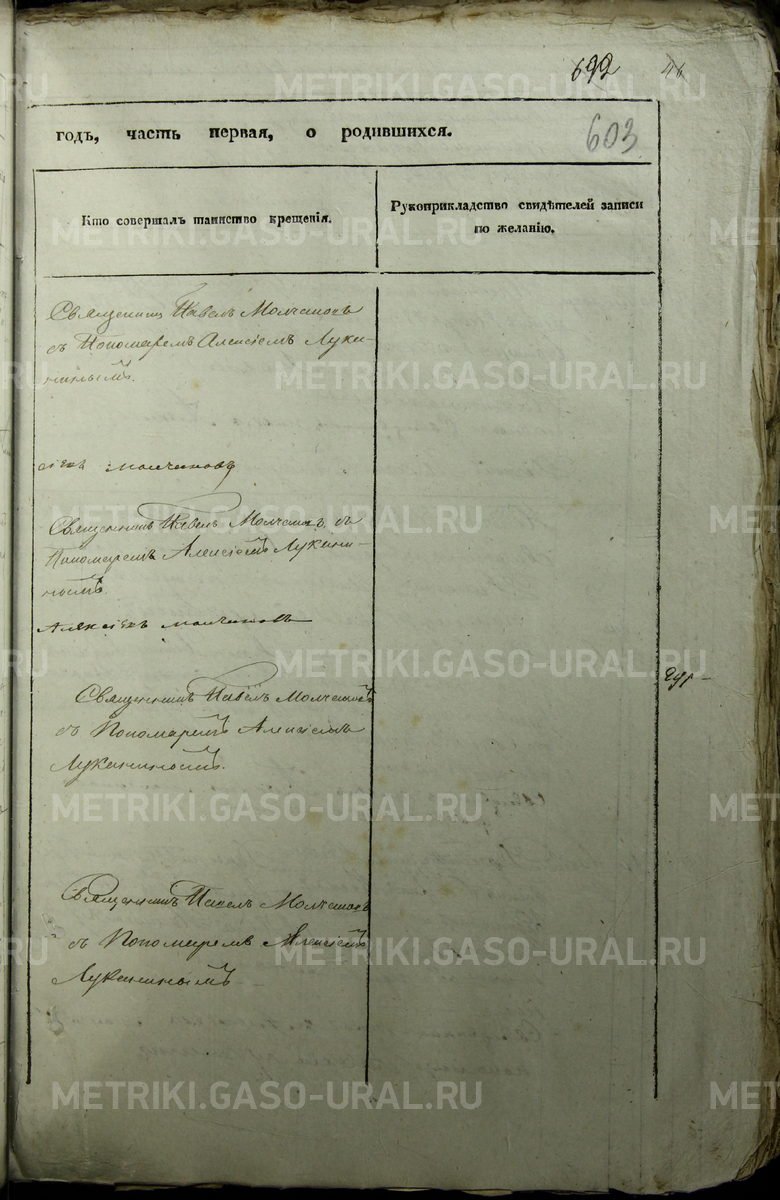 692 46
годъ, часть первая, о родившихся.
603
Кто совершалъ таинство крещенія.
Рукоприкладство свидѣтелей записи
по желанію.
Священникъ Павелъ Молчановъ
съ Пономаремъ Алексіемъ Луки-
нинымъ.
молчановъ
Священникъ Павелъ Молчановъ съ
Пономаремъ Алексіемъ Лукани-
нымъ.
Алексѣй молчановъ
Священникъ Павелъ Молчановъ
съ Пономаремъ Алексіемъ
Луканинымъ.
Священникъ Павелъ Молчановъ
съ Пономаремъ Алексіемъ
Луканинымъ
METRIKI.GASO-URAL.RU